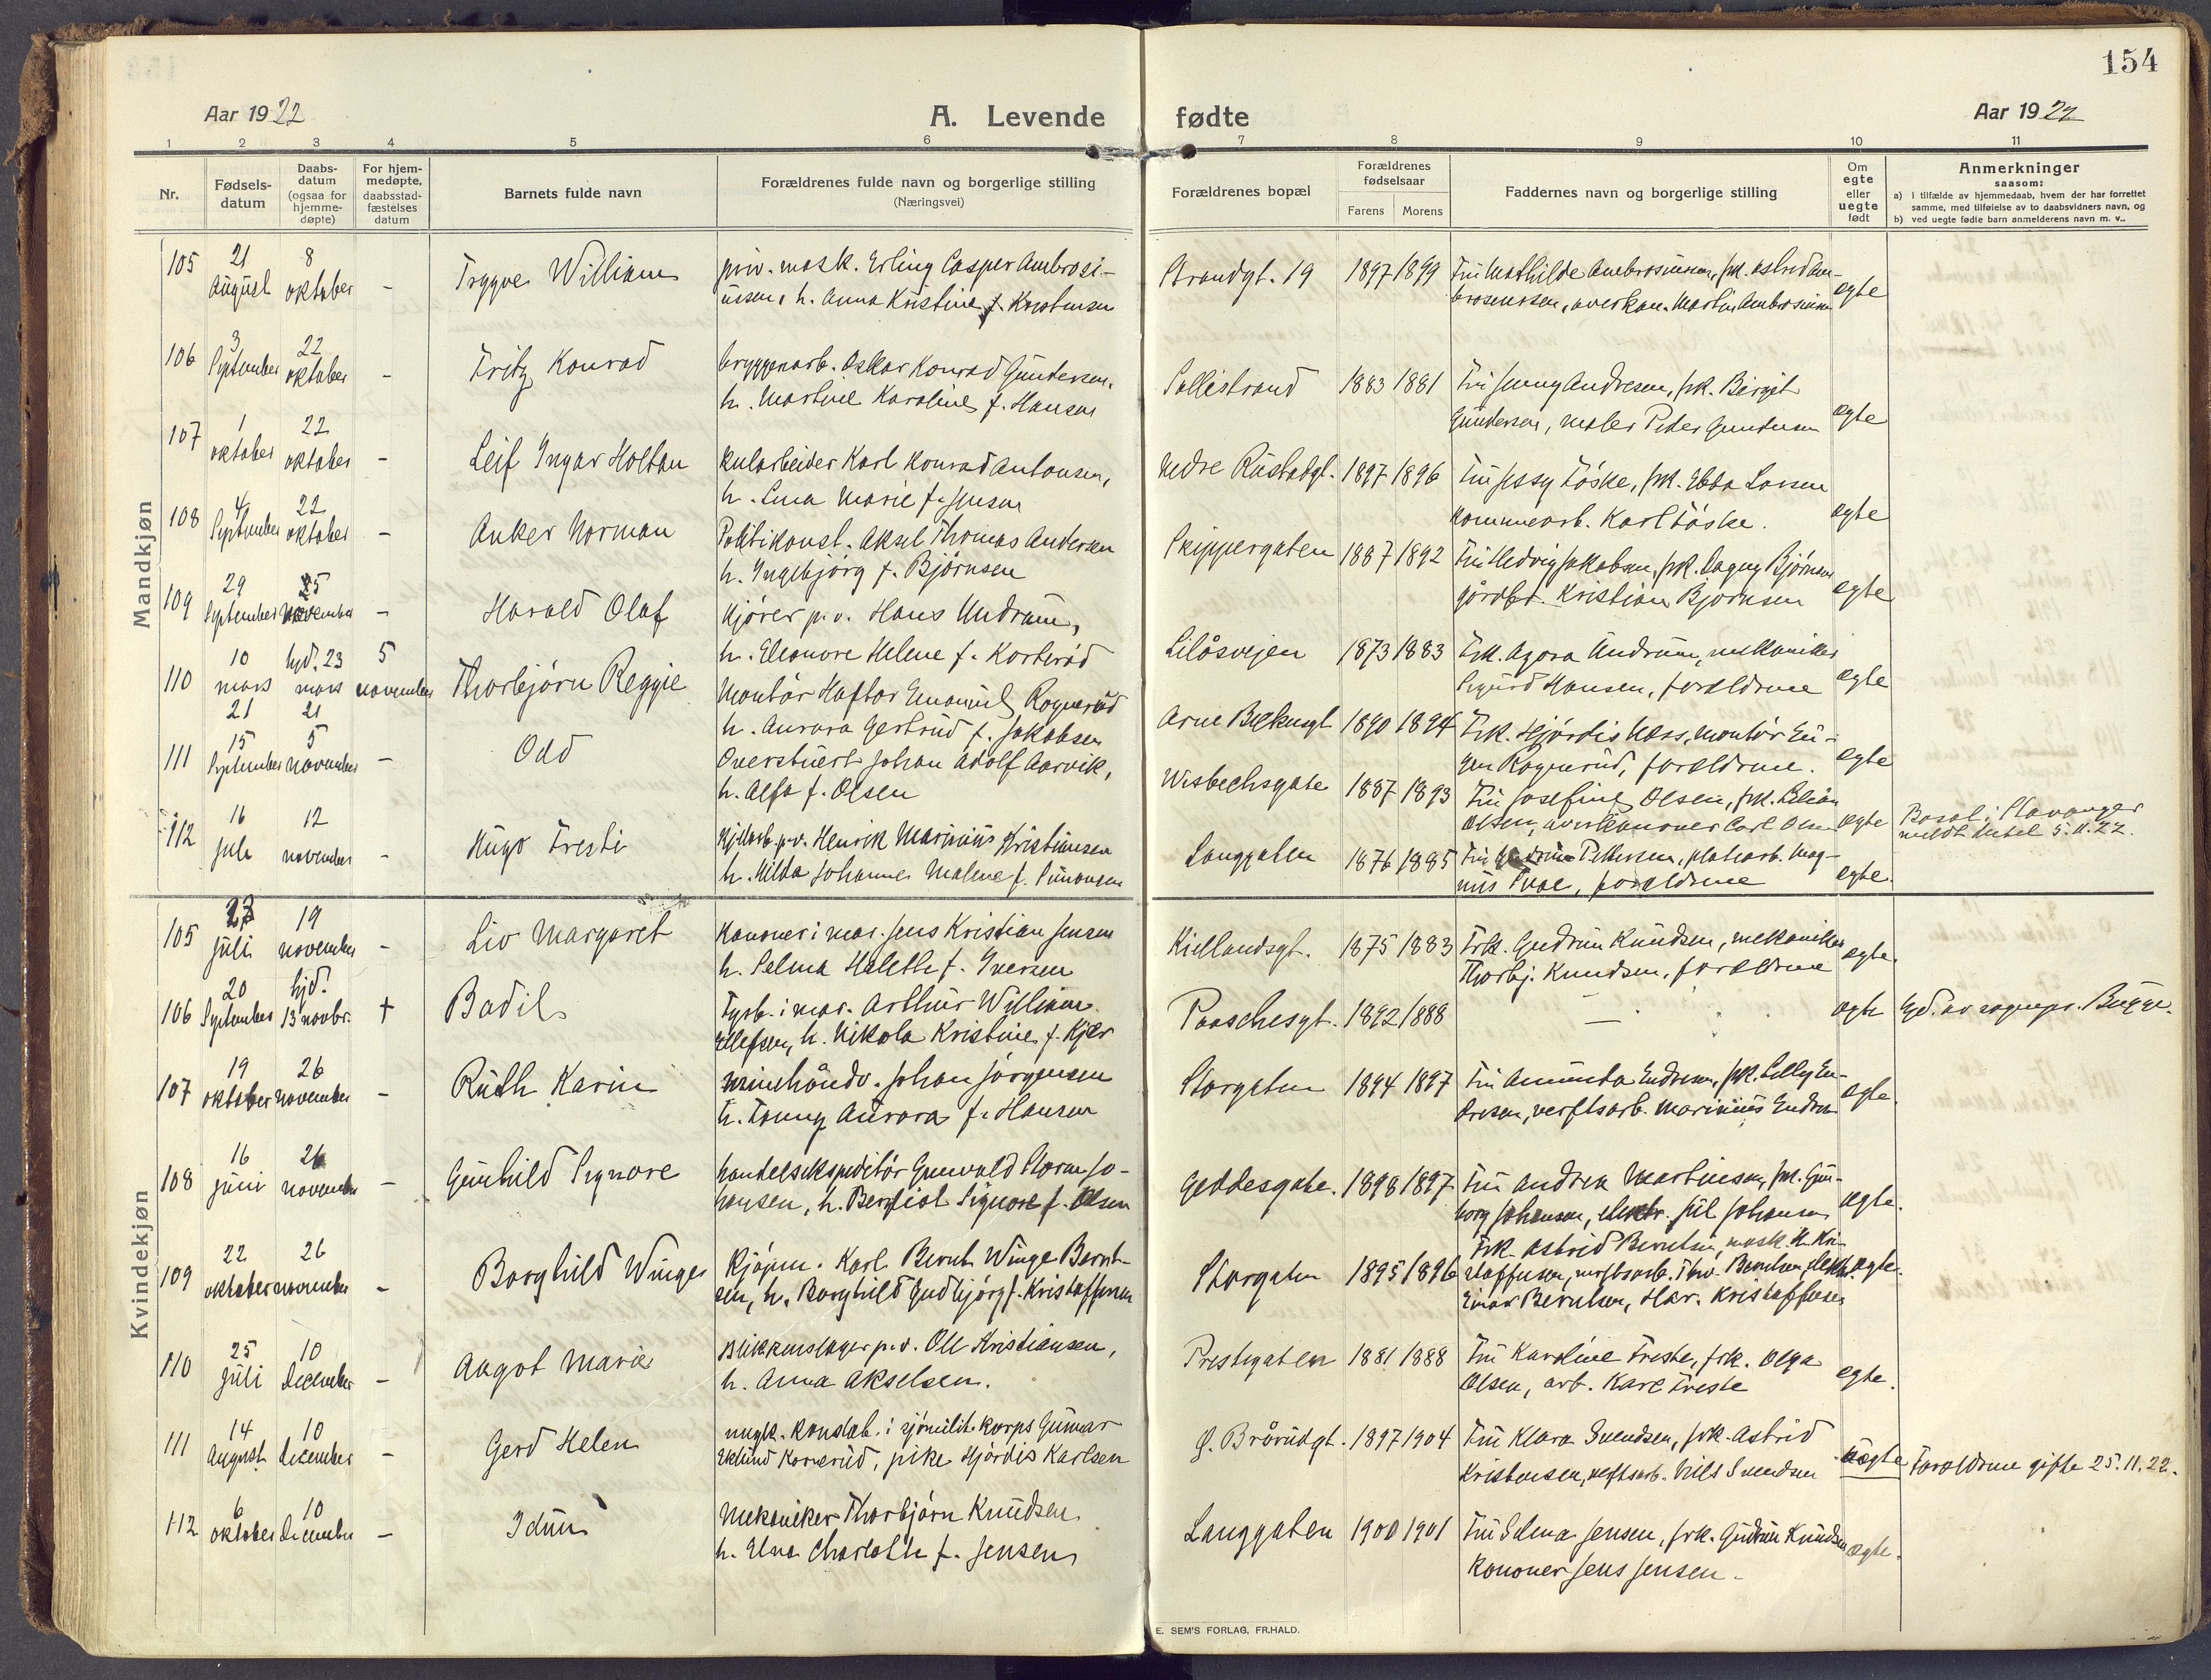 154
Aar 1922
A. Levende fødte
Aar 1922
1 2 3 4 5 6 7 8 9 10 11
Nr.
Fødsels-
datum
Daabs-
datum
(ogsaa for
hjemme-
døpte)
For hjem-
medøpte,
daabsstad-
fæstelses
datum
Barnets fulde navn
Forældrenes fulde navn og borgerlige stilling
(Næringsvei)
Forældrenes bopæl
Forældrenes
fødselsaar
Farens Morens
Faddernes navn og borgerlige stilling
Om
egte
eller
uegte
født
Anmerkninger
saasom:
a) i tilfælde av hjemmedaab, hvem der har forrettet
samme, med tilføielse av to daabsvidners navn, og
b) ved uegte fødte barn anmelderens navn m. v..
Mandkjøn
105 21 august 8 oktober - Trygve William
priv. mask. Erling Casper Ambrosi-
ussen, h. Anna Kristine f. Kristensen
Strandgt. 19 1897 1899
Fru Mathilde Ambrosiussen, frk. Astrid Am-
brosiussen, overkan. Martin Ambrosiussen
egte
106 3 September 22 oktober - Fritz Konrad
bryggearb. Oskar Konrad Gundersen,
h. Martine Karoline f. Hansen
Sollistrand 1883 1881
Fru Jenny Andresen, frk. Birgit
Gundersen, maler Peder Gundersen
egte
107 1 oktober 22 oktober - Leif Ingar Holtan
kularbeider Karl Konrad Antonsen,
h. Lina Marie f. Jensen
Nedre Rustadgt. 1897 1896
Fru Jessy Foske, frk. Ebba Larsen
kommunearb. Karl Foske.
egte
108 4 September 22 oktober - Anker Norman
Politikonst. Aksel Thomas Andersen
h. Ingebjørg f. Bjørnsen
Skippergaten 1887 1892
Fru Hedvig Jakobsen, frk. Dagny Bjørnsen
gårdbr. Kristian Bjørnsen
egte
109 29 September 5 november - Harald Olaf
Kjører p.v. Hans Undrum,
h. Eleonore Helene f. Korterød
Lilåsveien 1873 1883
Frk. Agora Undrum, mekaniker
Sigurd Hansen, forældrene
egte
110 10 mars 21 hjd. 23 mars 21 5 november Thorbjørn Reggie
Montør Haftor Emanuel Rognerud
h. Aurora Gertrud f. Jakobsen
Arne Bilkusgt 1890 1894
Frk. Hjørdis Næss, montør Eu-
gen Rognerud, forældrene.
egte
111 15 September 5 november - Odd
Overstuert Johan Adolf Aarvik,
h. Alfa f. Olsen
Wisbechsgate 1887 1893
Fru Josefine Olsen, frk. Lilian
Olsen, overkanoner Carl Olsen
egte
Bosat i Stavanger
meldt dertil 5.11.22.
112 16 juli 12 november - Hugo Fresti
Kjelarb. p.v. Henrik Marinius Kristiansen
h. Hilda Johanne Malene f. Simonsen
Langgaten 1876 1885
Fru Pettersen, platearb. Mag-
nus Moe, forældrene
egte.
Kvindekjøn
105 23 juli 19 november - Liv Margaret
Kanoner i mar. Jens Kristian Jensen
h. Selma Halette f. Iversen
Kiellandsgt. 1875 1883
Frk. Gudrun Knudsen, mekaniker
Thorbj. Knudsen, forældrene
egte.
106 20 September hjd. 13 novbr. † Bodil
Fyrb. i mar. Arthur William
Ellefsen, h. Nikola Kristine f. Kjær
Paaschesgt. 1892 1888
—
egte
Hjd. av sognepr. Bugge.
107 19 oktober 26 november - Ruth Karin
minehåndv. Johan Jørgensen
h. Fanny Aurora f. Hansen
Storgaten 1894 1897
Fru Amunda Endresen, frk. Lilly En-
dresen, verftsarb. Marinius Endresen
egte.
108 16 juni 26 november - Gunhild Signore
handelsekspeditør Gunvald Storm Jo-
hansen, h. Bergliot Signore f. Olsen
Geddesgate. 1898 1897
Fru Andrea Martinsen, frk. Gun-
borg Johansen, elektr. Jul Johansen
egte.
109 22 oktober 26 november - Borghild Winge
Kjøpm. Karl Bernt Winge Bernt-
sen, h. Borghild Gudbjørg f. Kristoffersen
Storgaten 1895 1896
Frk. Astrid Berntsen, mask. H. Kri-
stoffersen, verftsarb. Thv. Berntsen, elektr.
Einar Berntsen, Har. Kristoffersen
egte.
110 25 juli 10 december - Aagot Marie
Blikkenslager p.v. Ole Kristiansen,
h. Anna Akselsen.
Prestegaten 1881 1888
Fru Karoline Freste, frk. Olga
Olsen, arb. Karl Freste
egte.
111 14 August 10 december - Gerd Helen
ungk. konstab. i sjømilit. korps Gunnar
Eklund Korerud, pike Hjørdis Karlsen
G. Brårudgt. 1897 1904
Fru Klara Svendsen, frk. Astrid
Kristensen, verftsarb. Nils Svendsen
uegte
Forældrene gifte 25.11.22.
112 6 oktober 10 december - Idun
Mekaniker Thorbjørn Knudsen
h. Elna Charlotte f. Jensen
Langgaten 1900 1901
Fru Selma Jensen, frk. Gudrun Knudsen
kanoner Jens Jensen.
egte.
E. SEM'S FORLAG, FR.HALD.